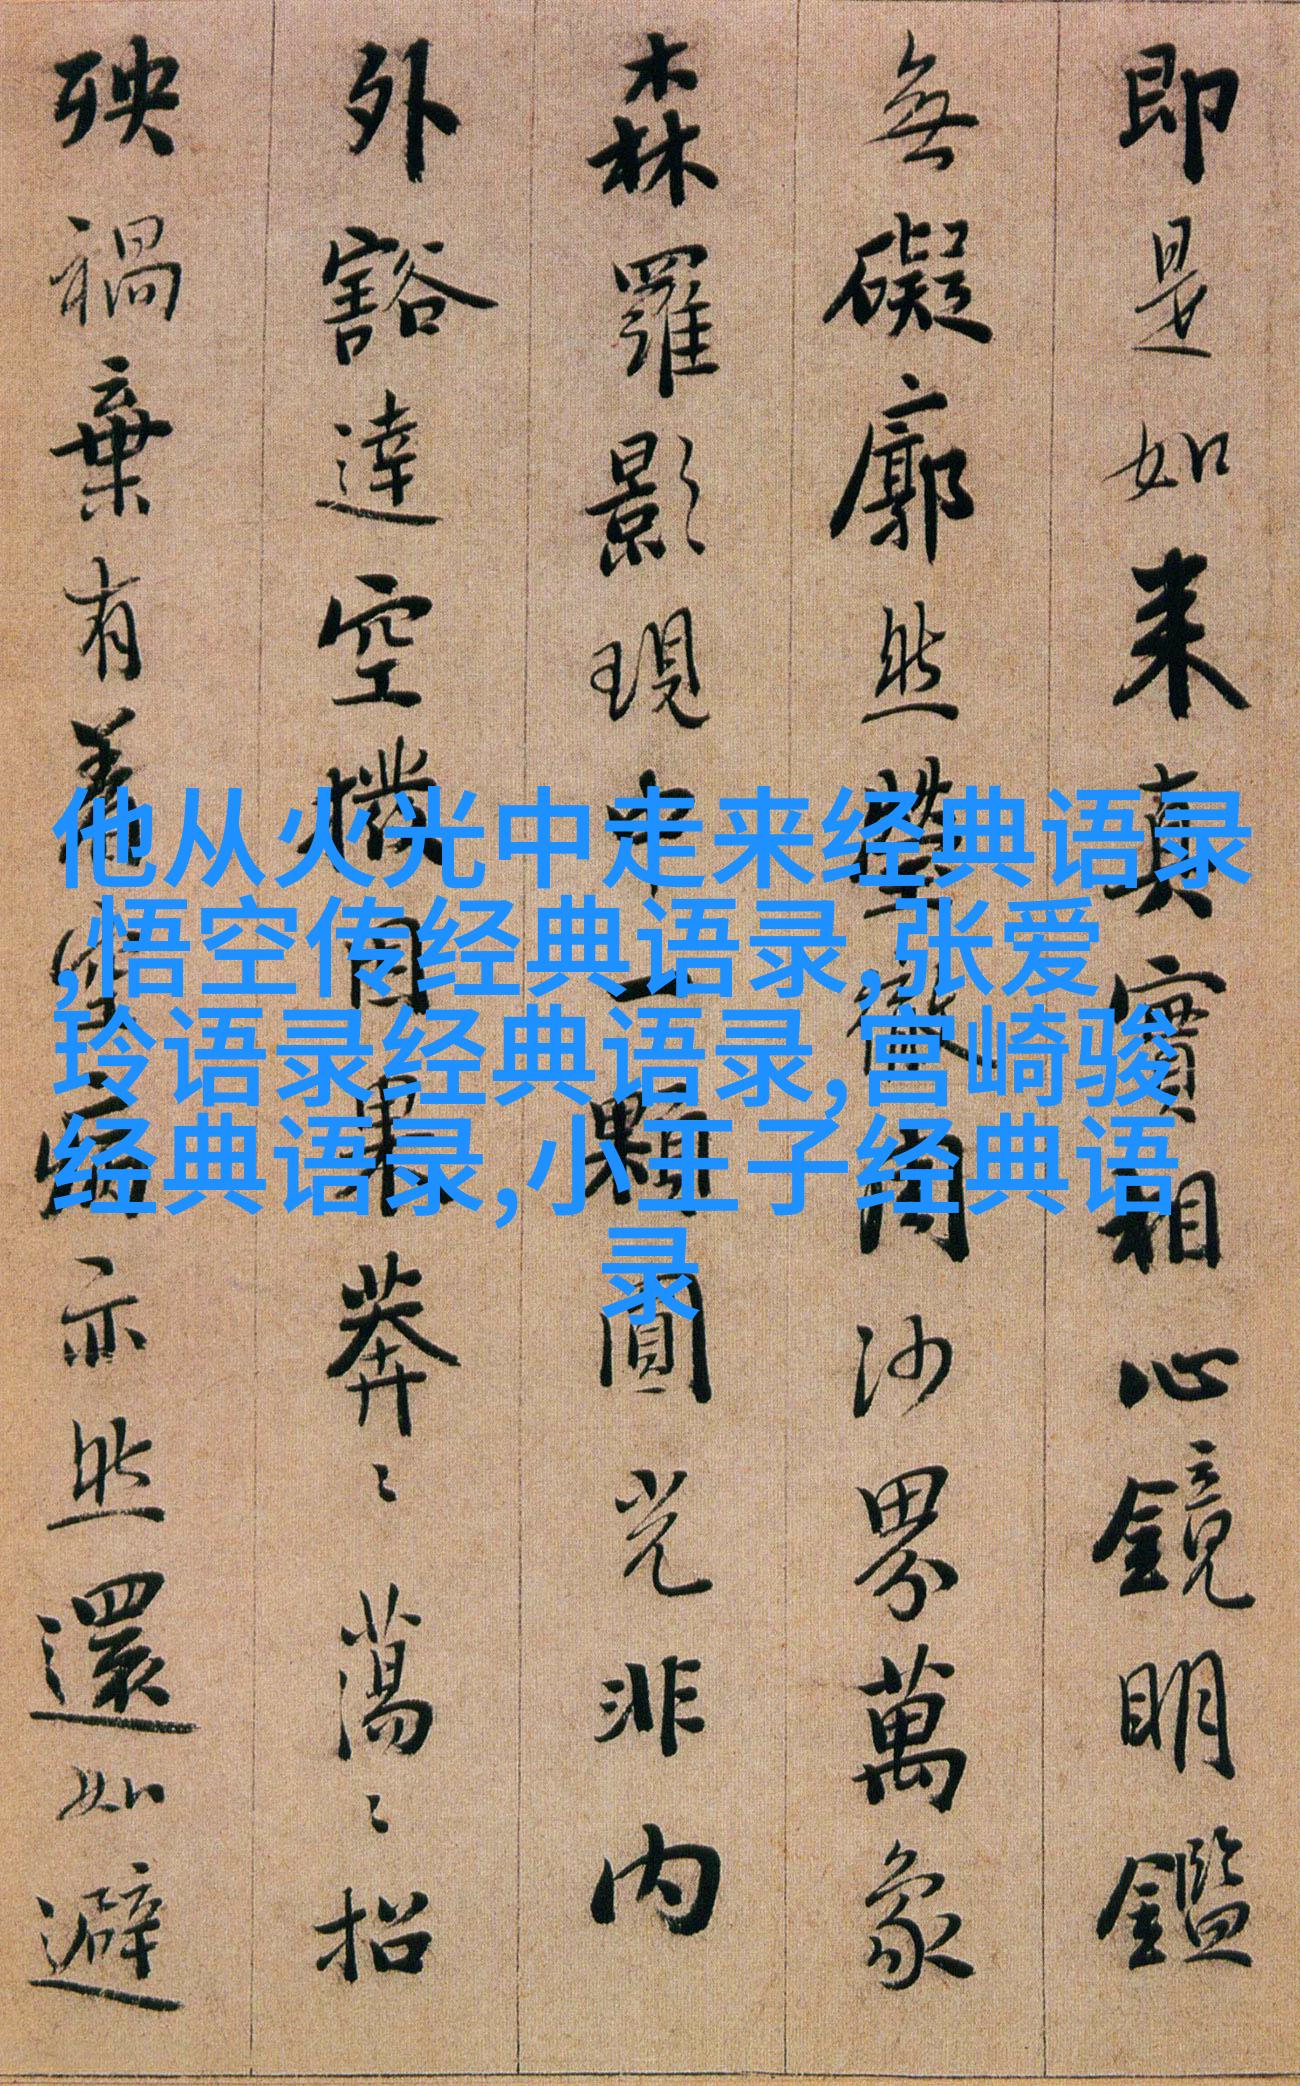 即是如来真實相心鏡明鑑
無礙廓然瑩徹周沙界萬象
森羅影現中一顆圓光非內
外豁達空撥因果莽〻蕩〻招
殃禍棄有着空病亦然還如避
他从火光中走来经典语录
,悟空传经典语录,张爱
玲语录经典语录,宫崎骏
经典语录,小王子经典语
录